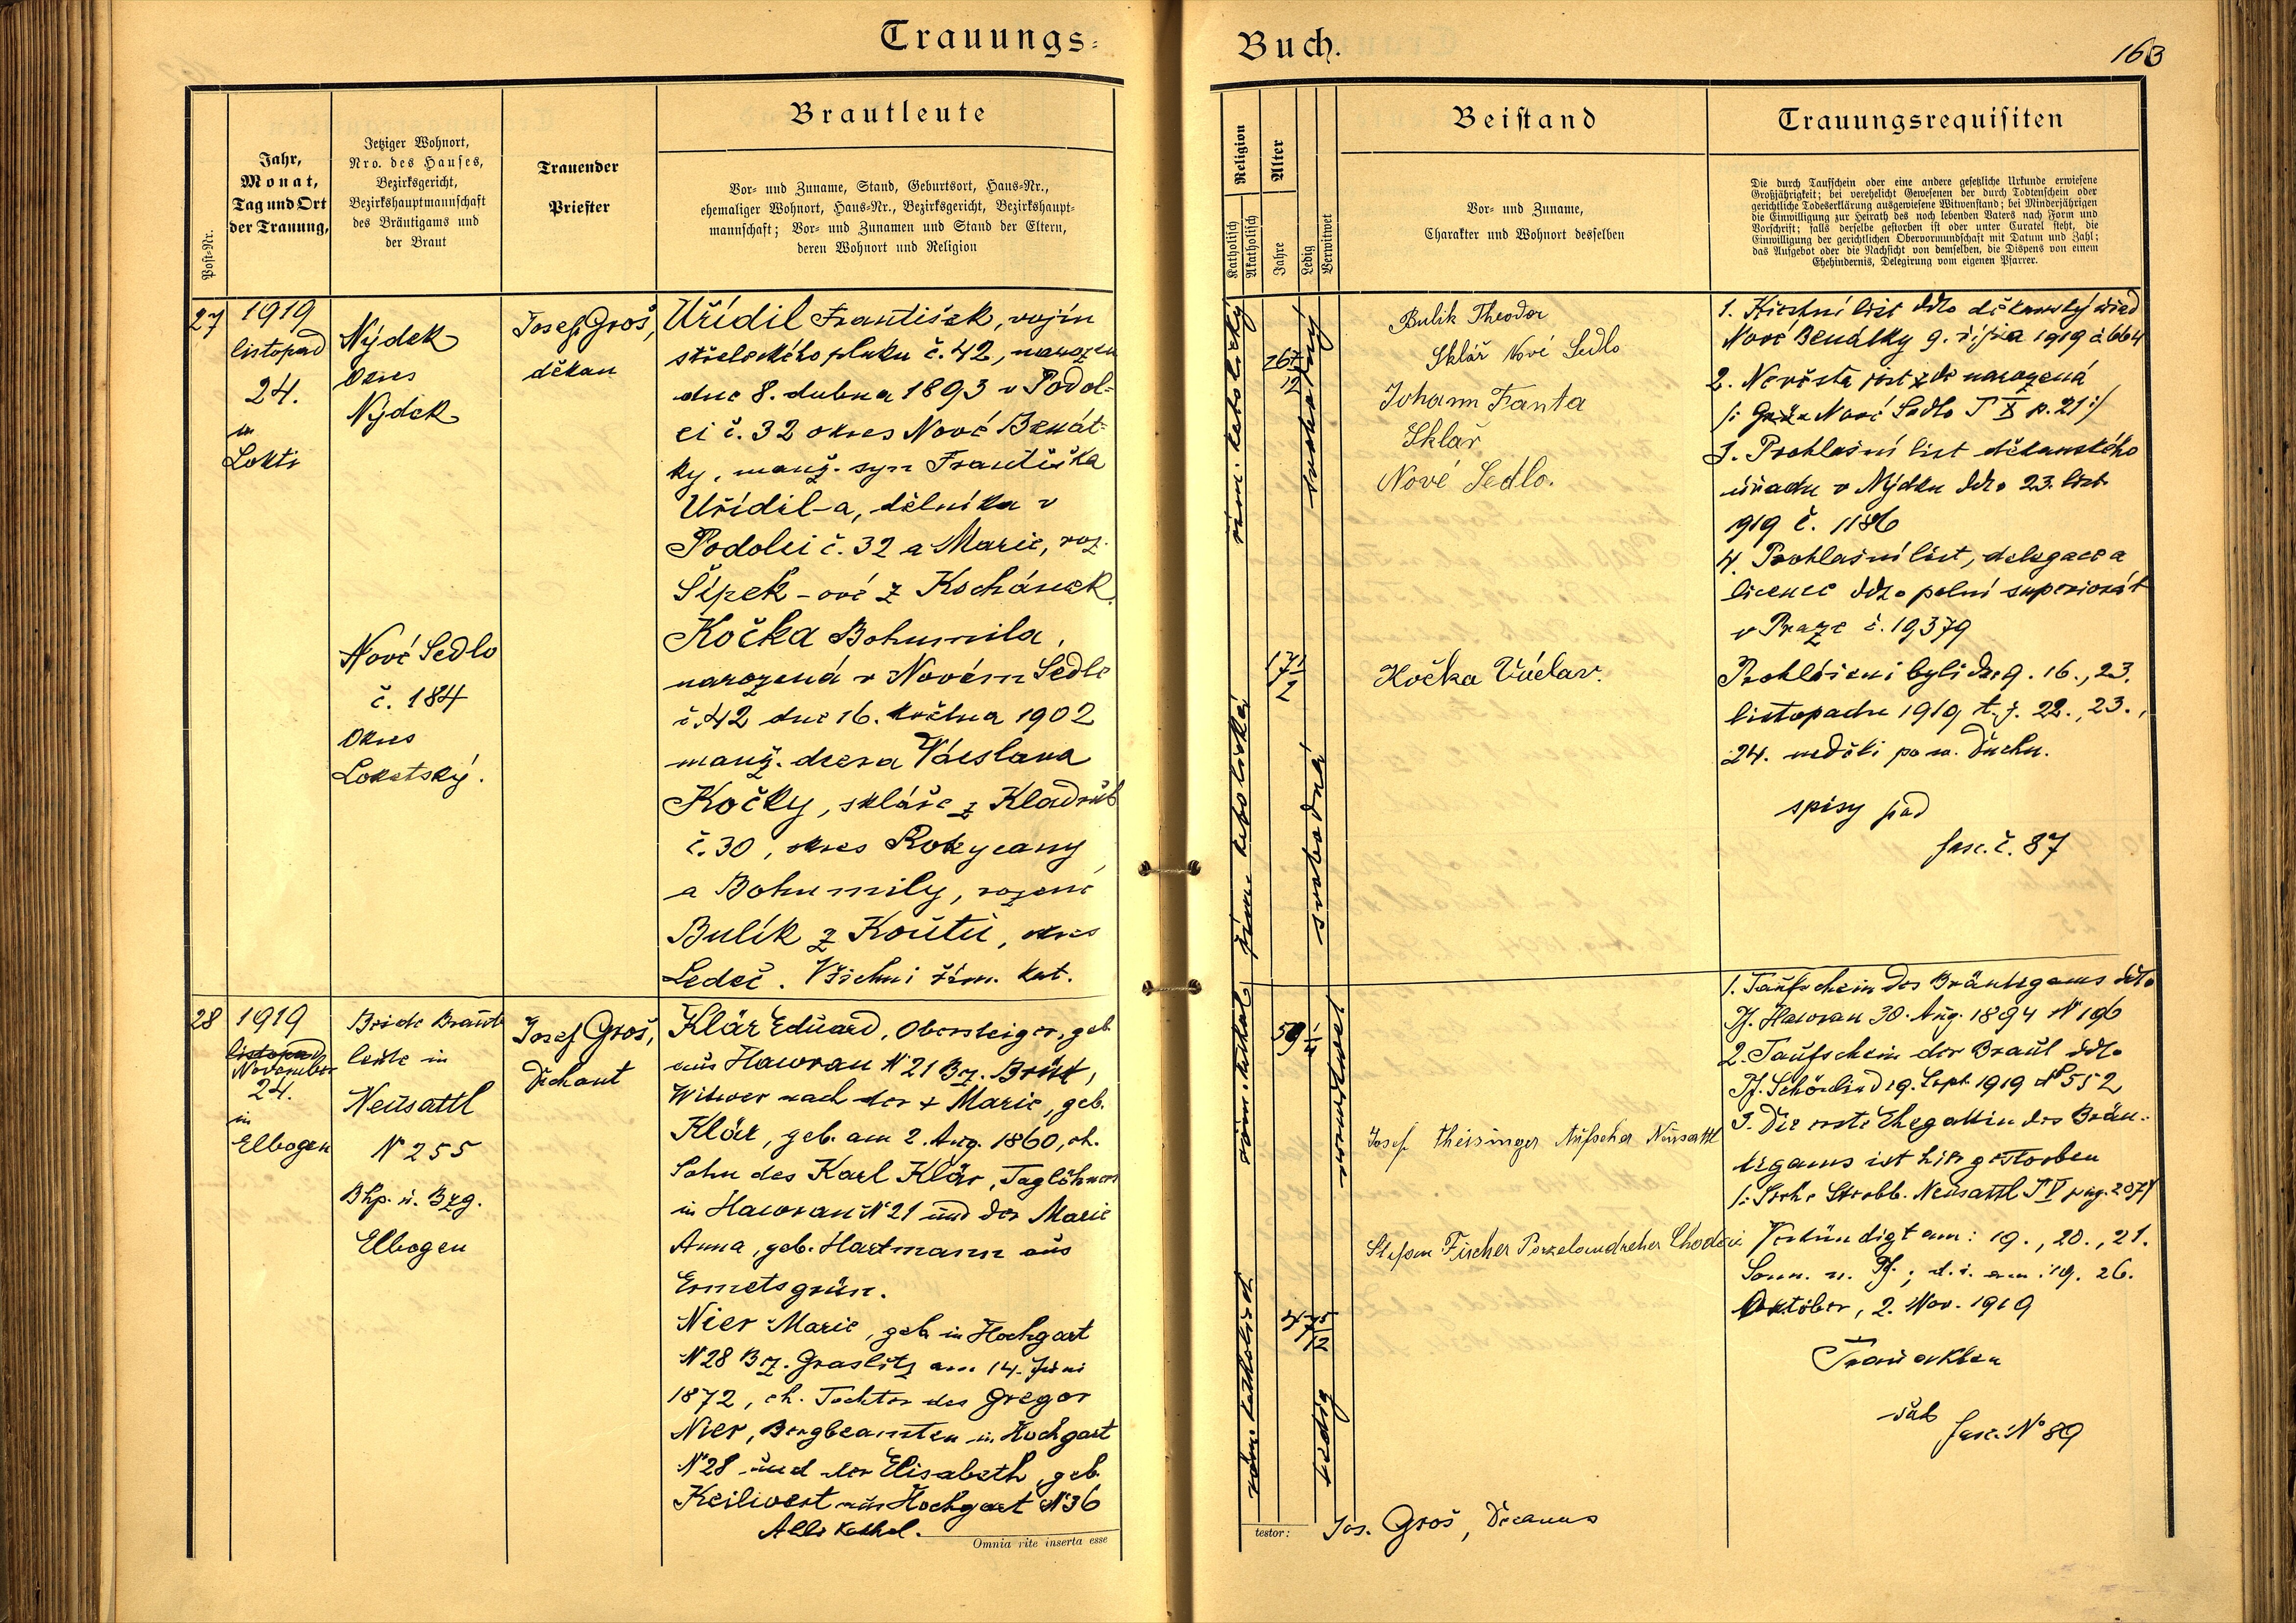 Trauungs-
Buch.
163
Post-Nr.
Jahr,
Monat,
Tag und Ort
der Trauung,
Jetziger Wohnort,
Nro. des Hauses,
Bezirksgericht,
Bezirkshauptmannschaft
des Bräutigams und
der Braut
Trauender
Priester
Brautleute
Vor- und Zuname, Stand, Geburtsort, Haus-Nr.,
ehemaliger Wohnort, Haus-Nr., Bezirksgericht, Bezirkshaupt-
mannschaft; Vor- und Zunamen und Stand der Eltern,
deren Wohnort und Religion
Religion
Katholisch
Akatholisch
Alter
Jahre
Ledig
Verwitwet
Beistand
Vor- und Zuname,
Charakter und Wohnort desselben
Trauungsrequisiten
Die durch Taufschein oder eine andere gesetzliche Urkunde erwiesene
Großjährigkeit; bei verehelicht Gewesenen der durch Todtenschein oder
gerichtliche Todeserklärung ausgewiesene Witwenstand; bei Minderjährigen
die Einwilligung zur Heirath des noch lebenden Vaters nach Form und
Vorschrift; falls derselbe gestorben ist oder unter Curatel steht, die
Einwilligung der gerichtlichen Obervormundschaft mit Datum und Zahl;
das Aufgebot oder die Nachsicht von demselben, die Dispens von einem
Ehehindernis, Delegirung vom eigenen Pfarrer.
27
1919
listopad
24.
in
Lokti
Nýdek
Okres
Nýdek
Nové Sedlo
č. 184
Okres
Loketský.
Josef Groš,
děkan
Uřídil František, vojín
střeleckého pluku č. 42, narozen
dne 8. dubna 1893 v Podol-
ci č. 32 okres Nové Benát-
ky, manž. syn Františka
Uřídil-a, dělníka v
Podolci č. 32 a Marie, roz.
Šípek-ové z Kochánek.
Kočka Bohumila,
narozená v Novém Sedle
č. 42 dne 16. května 1902
manž. dcera Václava
Kočky, skláře z Kladrub
č. 30, okres Rokycany
a Bohumily, rozené
Bulík z Koutů, okres
Ledeč. Všichni řím. kat.
řím. katolický
26 7/12
svobodný
řím. katolická
17 1/2
svobodná
Bulik Theodor
Sklář Nové Sedlo
Johann Fanta
Sklář
Nové Sedlo.
Kočka Václav.
1. Křestní list ddto děkanský úřad
Nové Benátky 9. října 1919 č 664
2. Nevěsta jest zde narozená
Nové Sedlo T X p. 21 :/
3. Prohlašní list děkanského
úřadu v Nýdku ddto 23. list.
919 č. 1186
4. Prohlašní list, delegace a
licence ddto polní superiorát
v Praze č. 19379
Prohlášeni byli dne 9. 16., 23.
listopadu 1919 t. j. 22., 23.,
24. neděli po sv. Duchu.
spisy pod
fasc. č. 87
28
1919
listopad
November
24.
in
Elbogen
Beide Braut-
leute in
Neusattl
N 255
Bhp. u. Bzg.
Elbogen
Josef Groš,
Dechant
Klär Eduard, Obersteiger, geb.
aus Hawran N 21 Bz. Brüx,
Witwer nach der + Marie, geb.
Klär, geb. am 2. Aug. 1860, eh.
Sohn des Karl Klär, Taglöhners
in Hawran N 21 und der Marie
Anna, geb. Hartmann aus
Ermetsgrün.
Nier Marie, geb. in Hochgart
N 28 Bz. Graslitz am 14. Juni
1872, eh. Tochter des Gregor
Nier, Bergbeamten in Hochgart
N 28 und der Elisabeth, geb.
Keilwert aus Hochgart N 36
Alle kathol.
Omnia rite inserta esse
röm. kathol.
59 1/4
verwitwet
röm. katholisch
47 5/12
ledig
Josef Theisinger Aufseher Neusattl
Stefan Fischer Porzelandreher Chodau
testor:
Jos. Groš, Decanus
1. Taufschein des Bräutigams ddto
Pf. Hawran 30. Aug. 1894 N 196
2. Taufschein der Braut ddto
Pf. Schönlind 19. Sept. 1919 N° 552
3. Die erste Ehegattin des Bräu-
tigams ist hier gestorben
/: Siehe Sterbb. Neusattl T V pag. 207 :/
Verkündigt am: 19., 20., 21.
Sonn. n. Pf.; d. i. am: 19. 26.
Oktober, 2. Nov. 1919
Trauakten
sub
fasc. N° 89